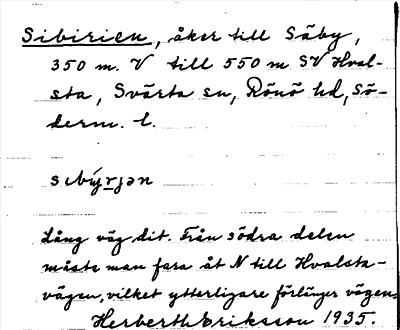 Sibirien, åker till Säby,
350 m. V till 550 m SV Hval-
sta, Svärta sn, Rönö hd, Sö-
derm. l.
sɩbýrjən
Lång väg dit. Från södra delen
måste man fara åt N till Hvalsta-
vägen, vilket ytterligare förlänger vägen.
Herberth Eriksson 1935.